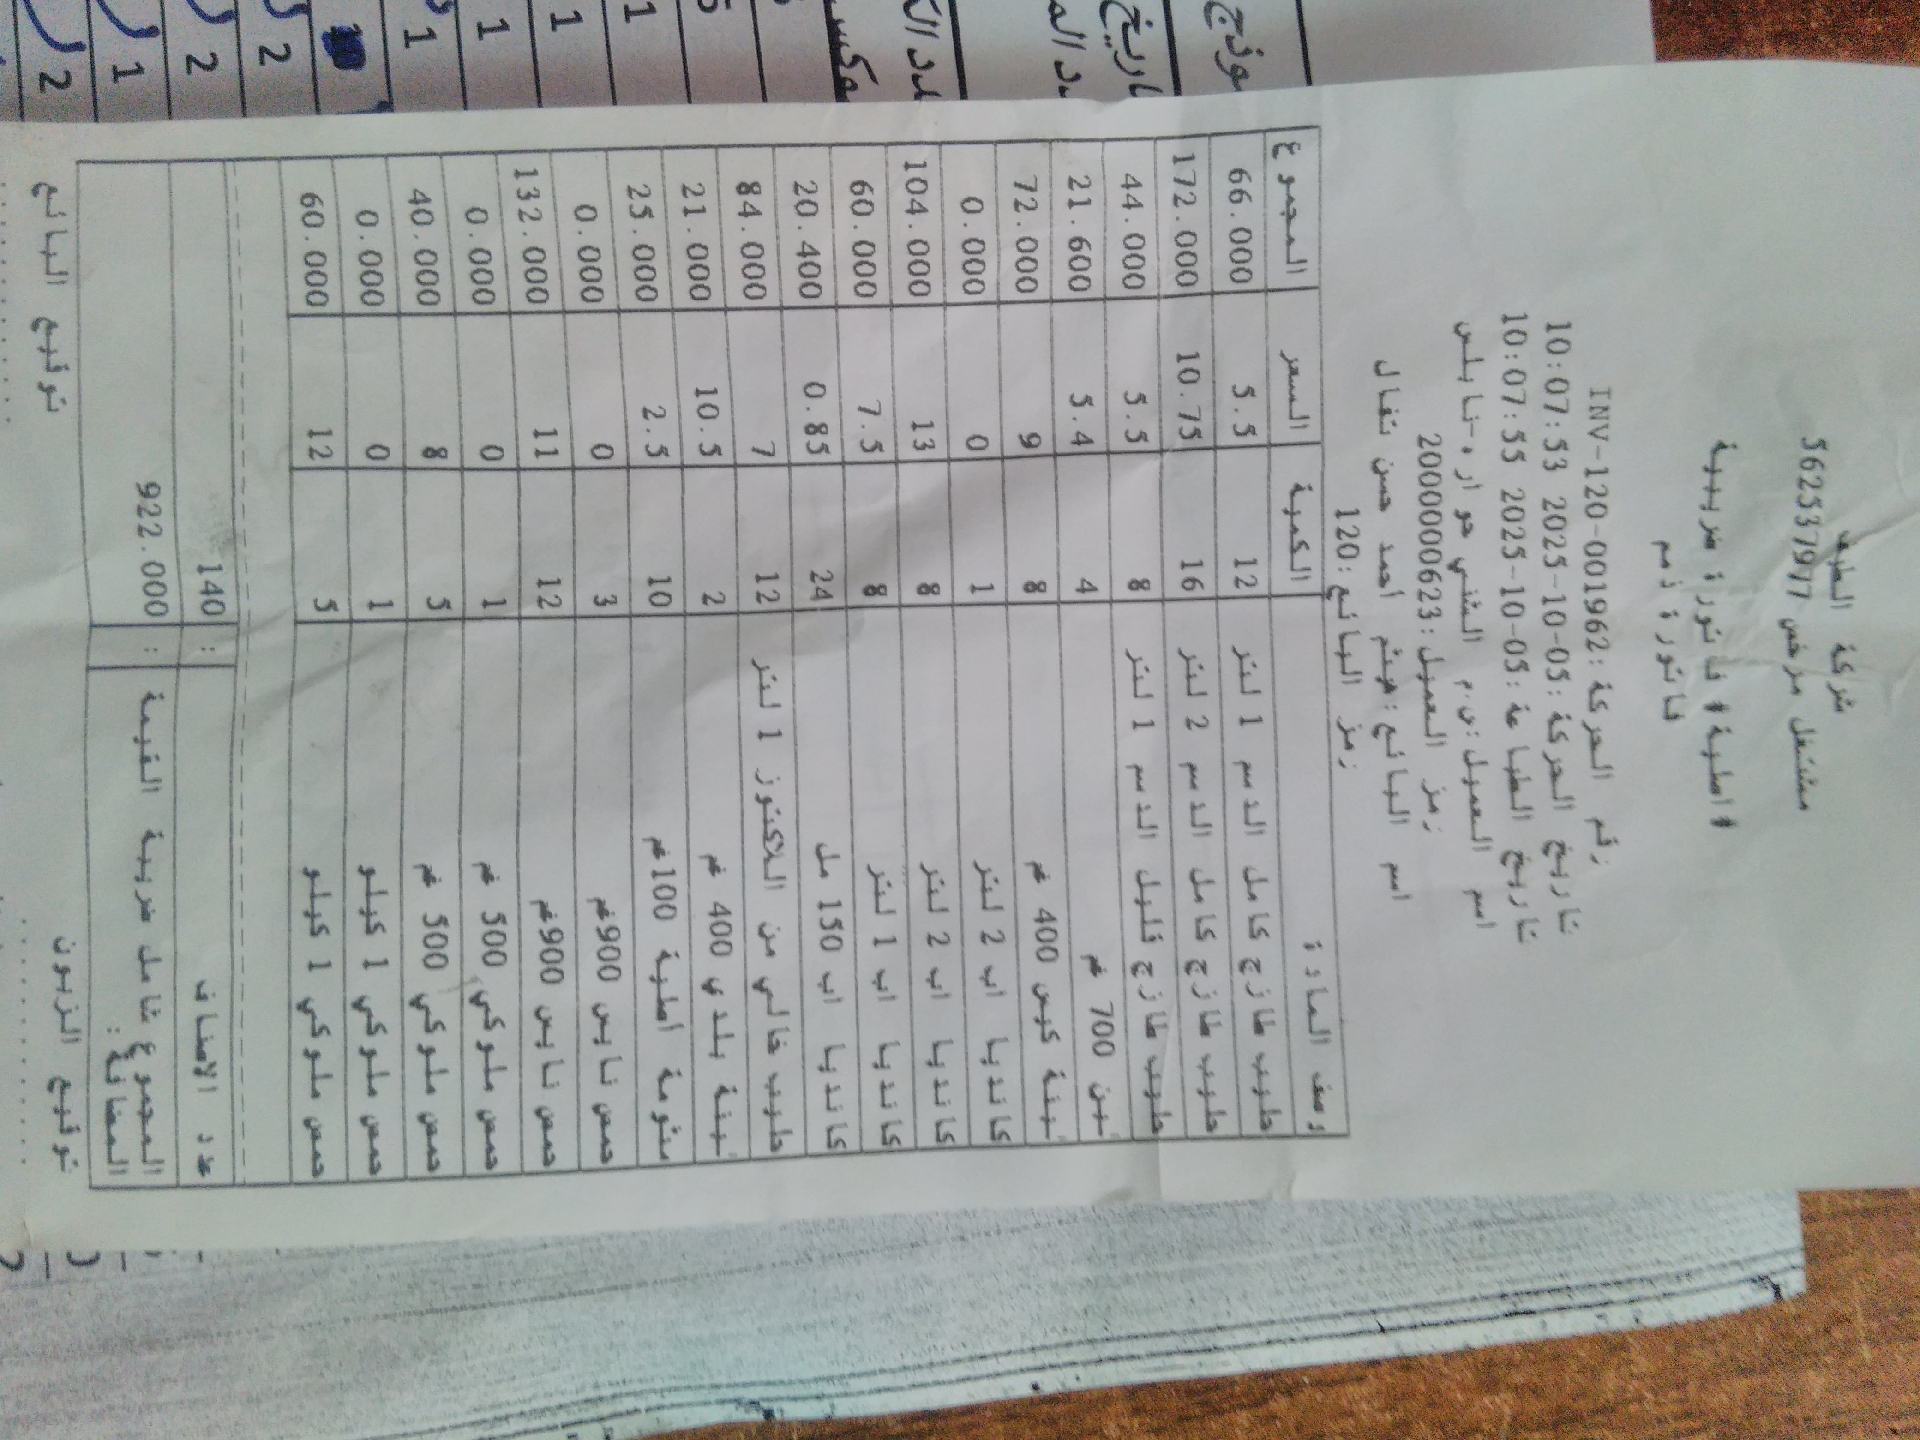 شركة الطيف
مشتغل مرخص 562537977
#اصلية# فاتورة ضريبية
فاتورة ذمم
رقم الحركة:INV-120-001962
تاريخ الحركة:2025-10-05 10:07:53
تاريخ الطباعة:2025-10-05 10:07:55
اسم العميل:س.م المثني حواره-نابلس
رمز العميل:2000000623
اسم البائع:هيثم احمد حسن نتفال
رمز البائع:120
وصف المادة الكمية السعر المجموع
حليب طازج كامل الدسم 1 لتر 12 5.5 66.000
حليب طازج كامل الدسم 2 لتر 16 10.75 172.000
حليب طازج قليل الدسم 1 لتر 8 5.5 44.000
لبن 700 غم 4 5.4 21.600
لبنة كيس 400 غم 8 9 72.000
كانديا اب 2 لتر 1 0 0.000
كانديا اب 2 لتر 8 13 104.000
كانديا اب 1 لتر 8 7.5 60.000
كانديا اب 150 مل 24 0.85 20.400
حليب خالي من اللاكتوز 1 لتر 12 7 84.000
لبنة بلدي 400 غم 2 10.5 21.000
متومة أصلية 100غم 10 2.5 25.000
حمص نايس 900غم 3 0 0.000
حمص نايس 900غم 12 11 132.000
حمص ملوكي 500 غم 1 0 0.000
حمص ملوكي 500 غم 5 8 40.000
حمص ملوكي 1 كيلو 1 0 0.000
حمص ملوكي 1 كيلو 5 12 60.000
عدد الاصناف : 140
المجموع شامل ضريبة القيمة المضافة: : 922.000
توقيع الزبون توقيع البائع